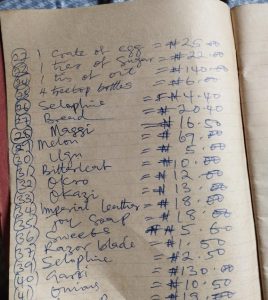 (22) 1 crate of egg = ₦25.00
ties of sugar = ₦22.00
1 tis of oil = ₦140.00
4 treetop bottles = ₦6.00
Selophine = ₦4.40
Bread = ₦20.40
(28) Maggi = ₦16.50
(29) Melon = ₦69.00
(30) Ugu = ₦5.00
(31) Bitterleaf = ₦10.00
(32) Okro = ₦12.00
(33) Okazi = ₦13.00
(34) Imperial leather = ₦18.00
(35) Joy Soap = ₦18.00
(36) Sweets = ₦5.60
(37) Razor blade = ₦1.50
(39) Selophine = ₦2.50
(40) Garri = ₦130.00
(41) Onions = ₦10.50